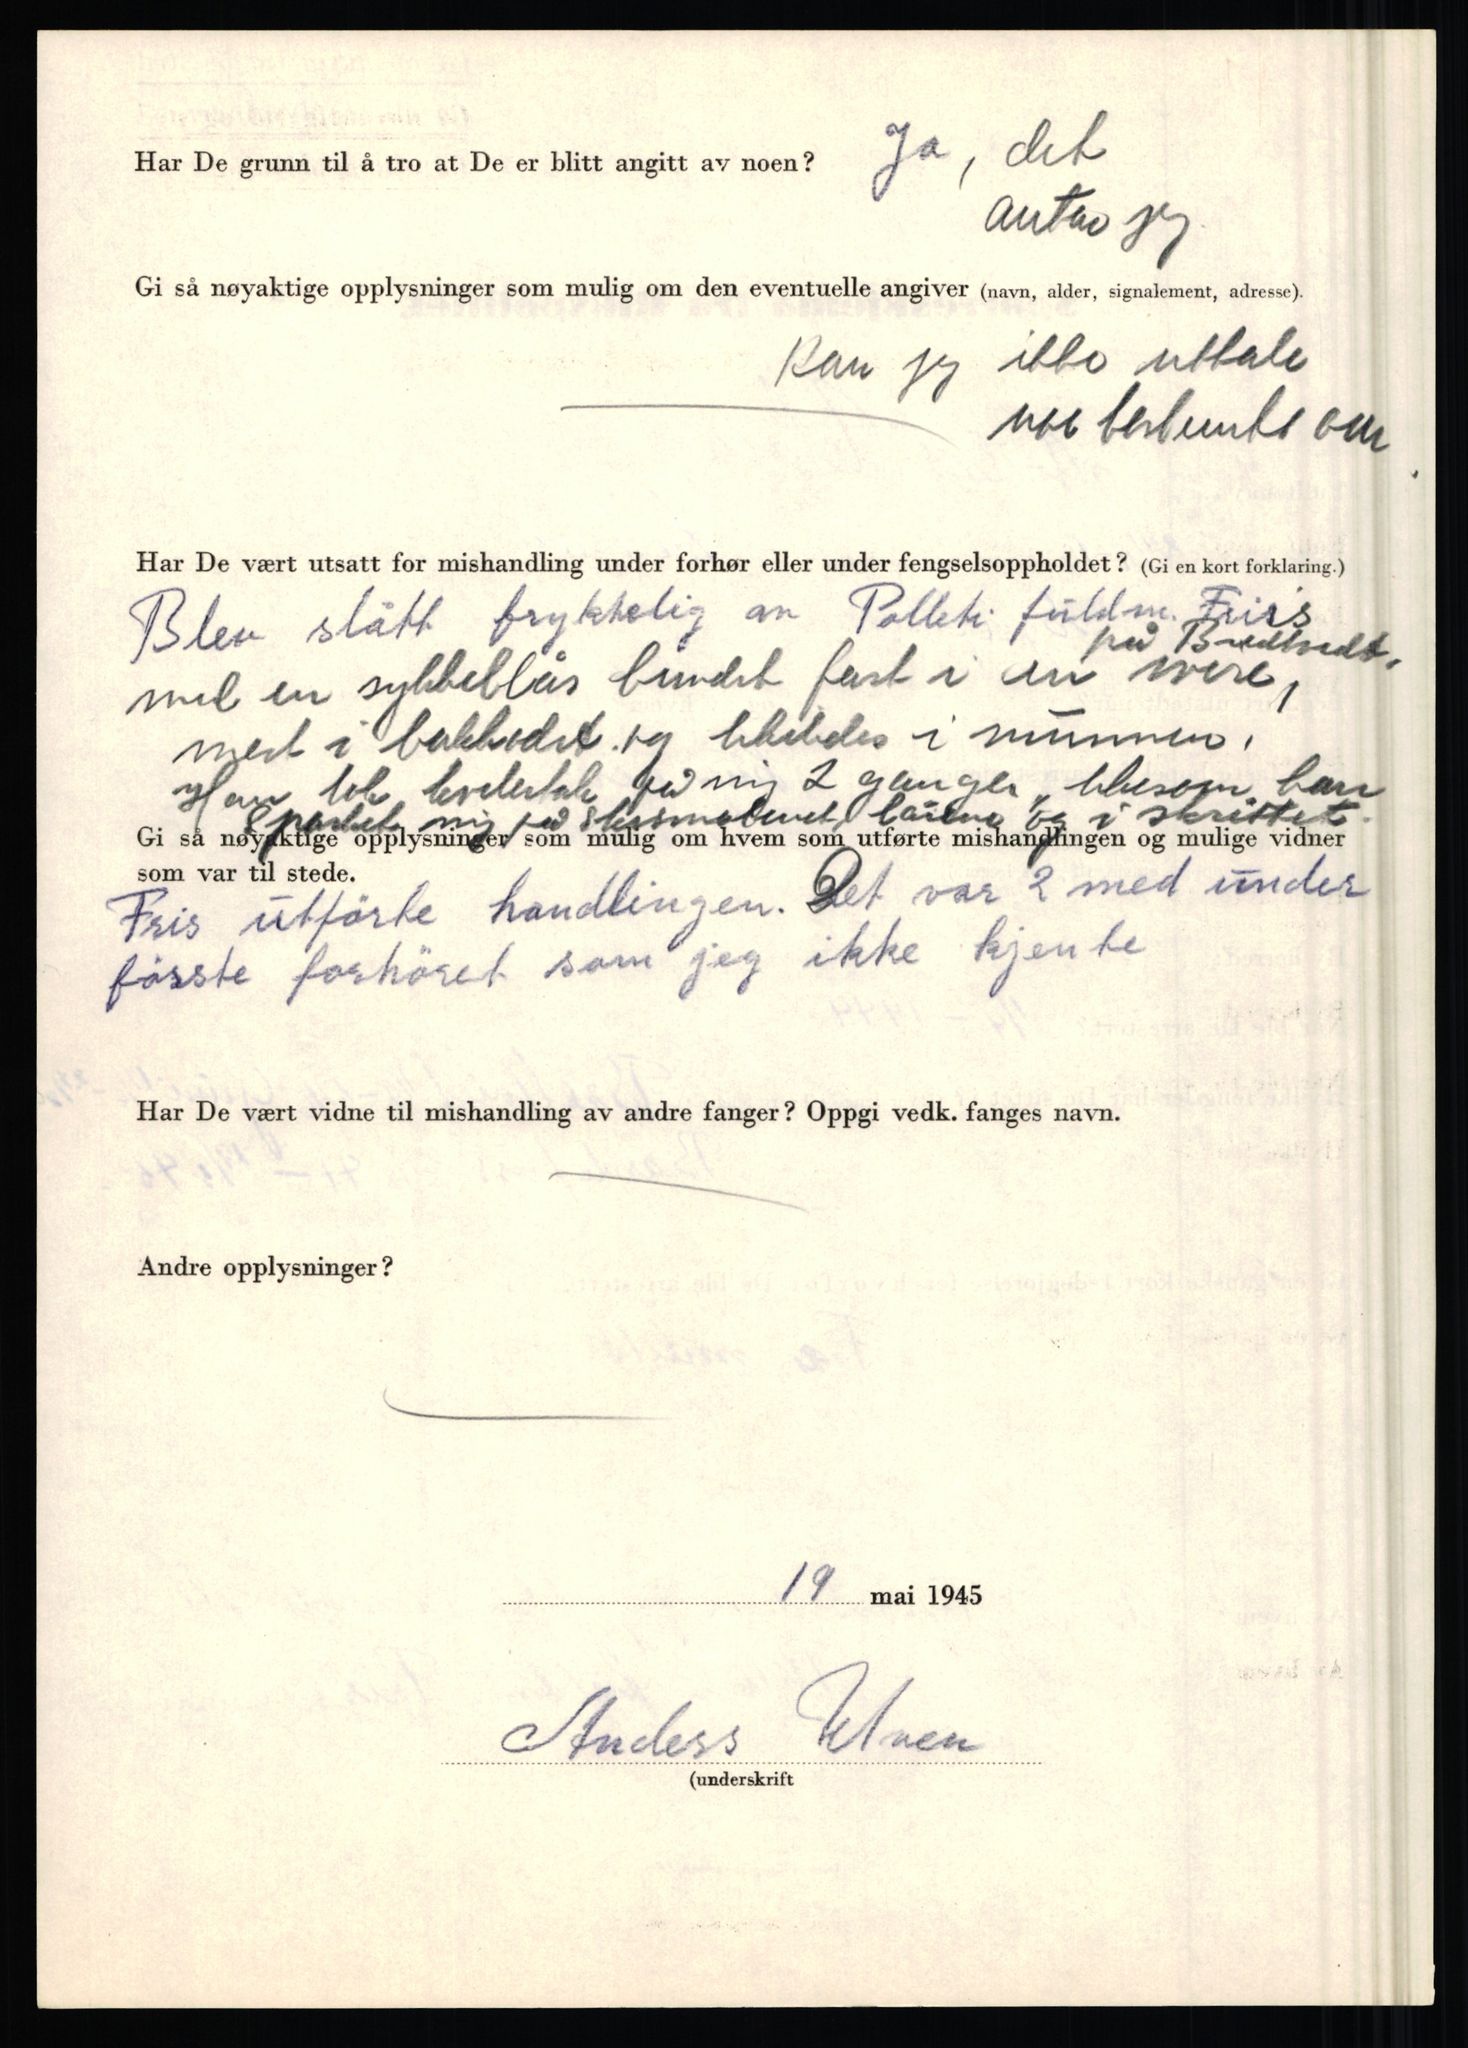 Har De grunn til å tro at De er blitt angitt av noen? Ja, det
antar jeg
Gi så nøyaktige opplysninger som mulig om den eventuelle angiver (navn, alder, signalement, adresse).
Kan jeg ikke uttale
noe bestemte om
Har De vært utsatt for mishandling under forhør eller under fengselsoppholdet? (Gi en kort forklaring.)
Blev slått fryktelig av Politi fuldm. Friis
på Bredtvedt.
med en sykkellås bundet fast i en wire,
mest i bakhodet og likeledes i munnen.
Han tok kveletak på mig 2 ganger, likesom han
sparket mig på låene og i skrittet.
Gi så nøyaktige opplysninger som mulig om hvem som utførte mishandlingen og mulige vidner
som var til stede.
Fris utförte handlingen. Det var 2 med under
förste forhöret som jeg ikke kjente
Har De vært vidne til mishandling av andre fanger? Oppgi vedk. fanges navn.
Andre opplysninger?
19 mai 1945
Anders Ulven
(underskrift